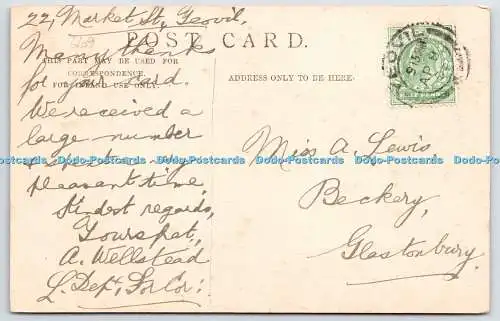 22, Market St, Yeovil.
POST CARD.
Many thanks
THIS PART MAY BE USED FOR
CORRESPONDENCE.
for your card.
FOR INLAND USE ONLY.
ADDRESS ONLY TO BE HERE.
We received a
large number
& spent a very
pleasant time,
Kindest regards,
Yours frat,
A. Wellstead
L. Dept, For Cor:
YEOVIL
Miss A. Lewis,
Beckery,
Glastonbury.
Dodo-Postcards Dodo-Postcards Dodo-Postcards Dodo-Postcards Dodo-Postcards Dodo-Postcards